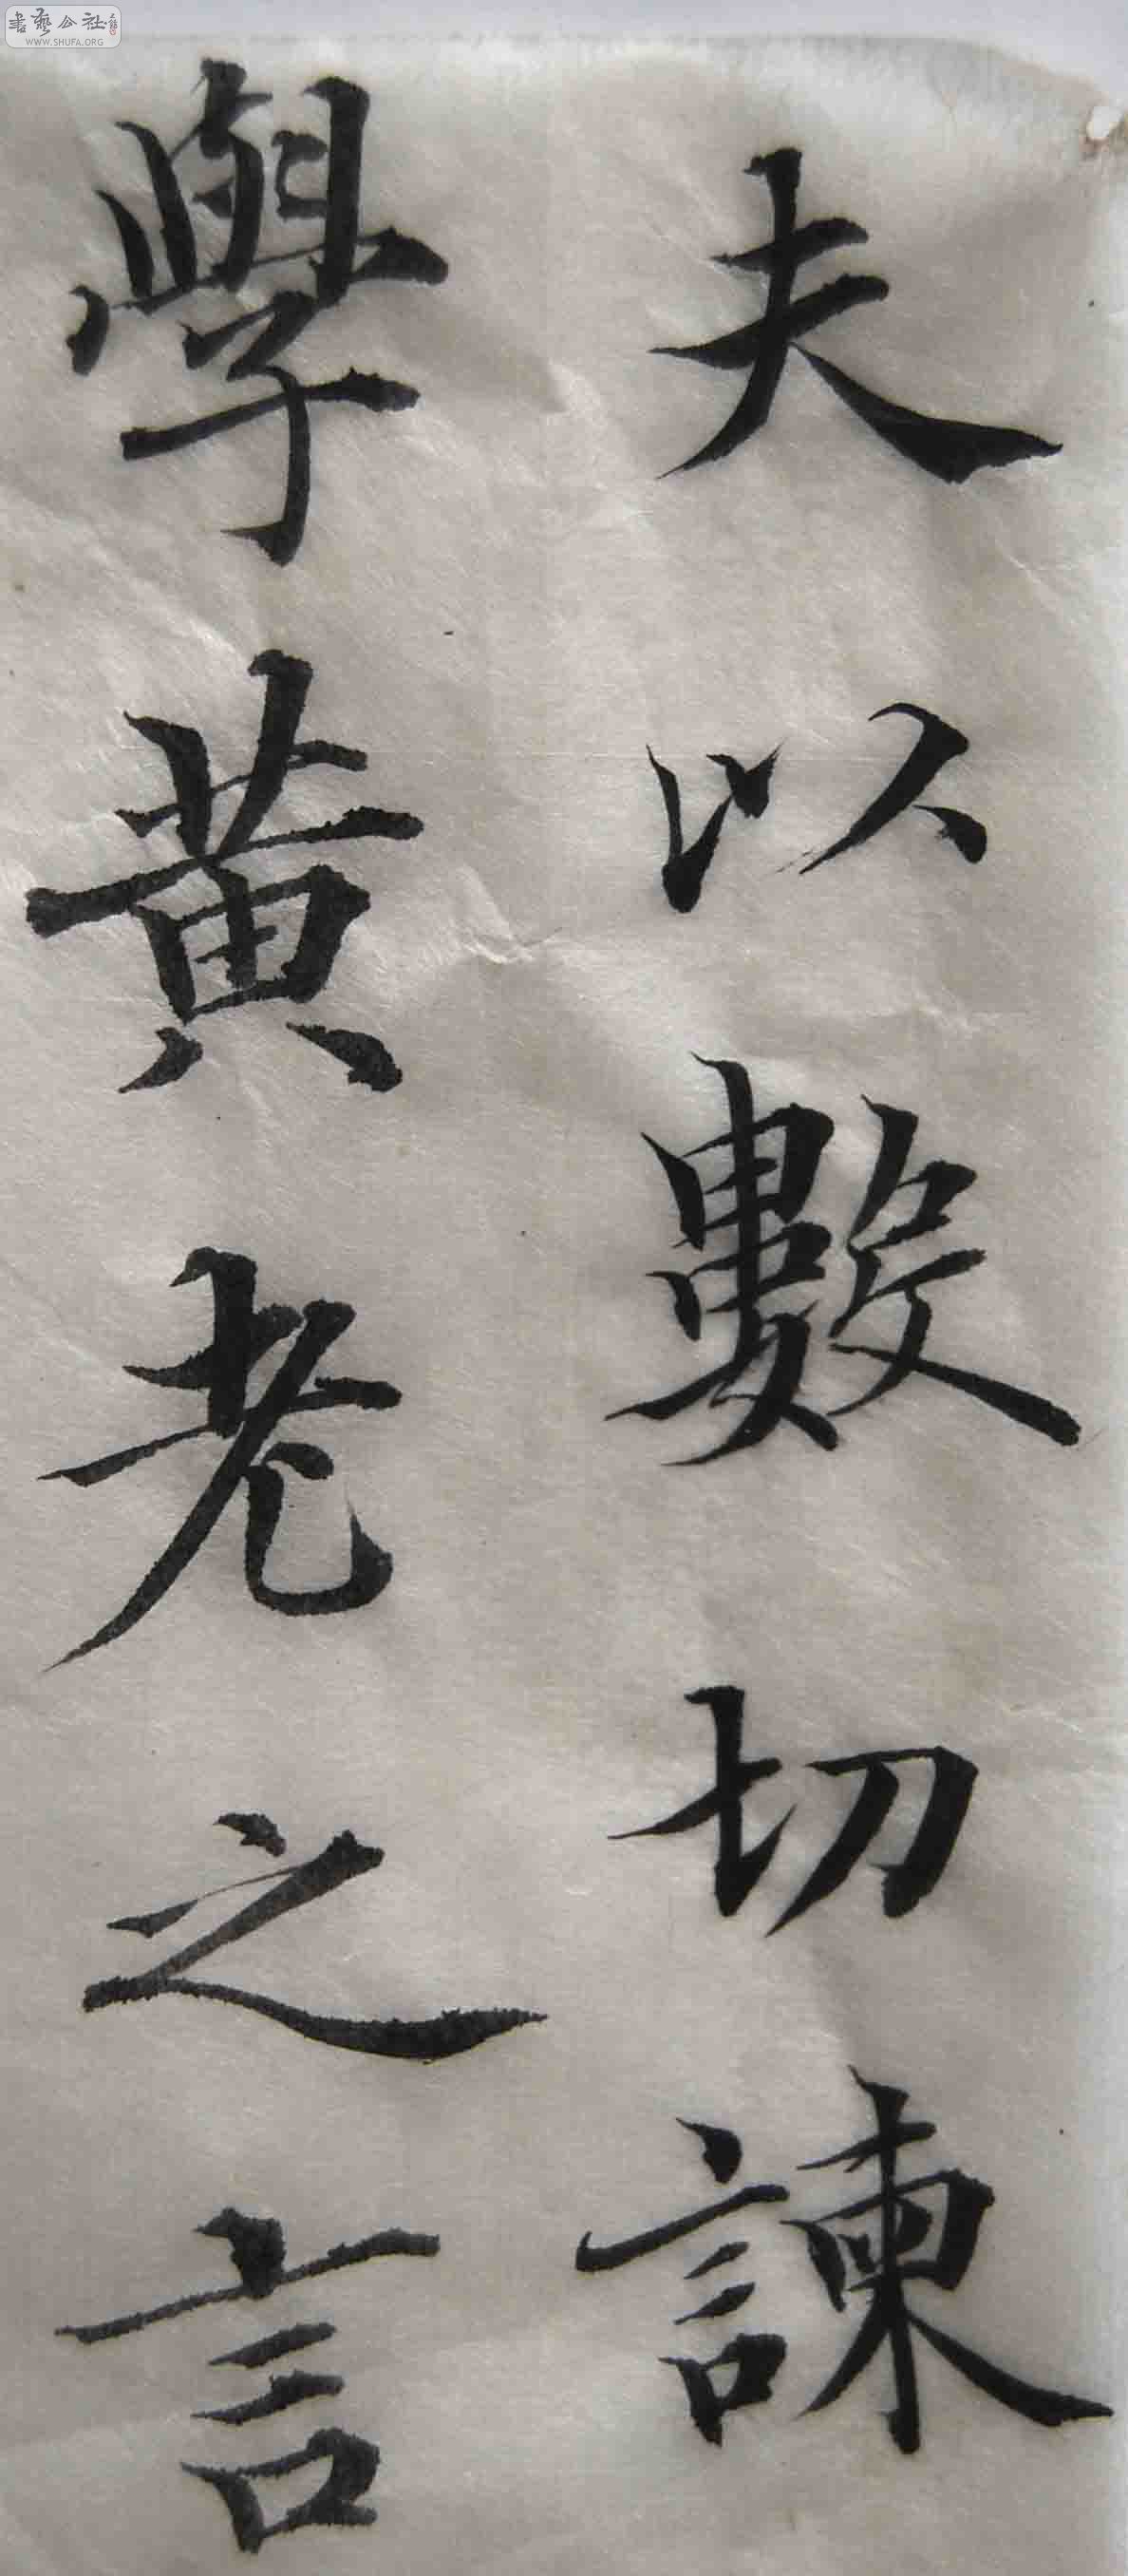 夫以數切諫
學黃老之言
書藝公社
WWW.SHUFA.ORG